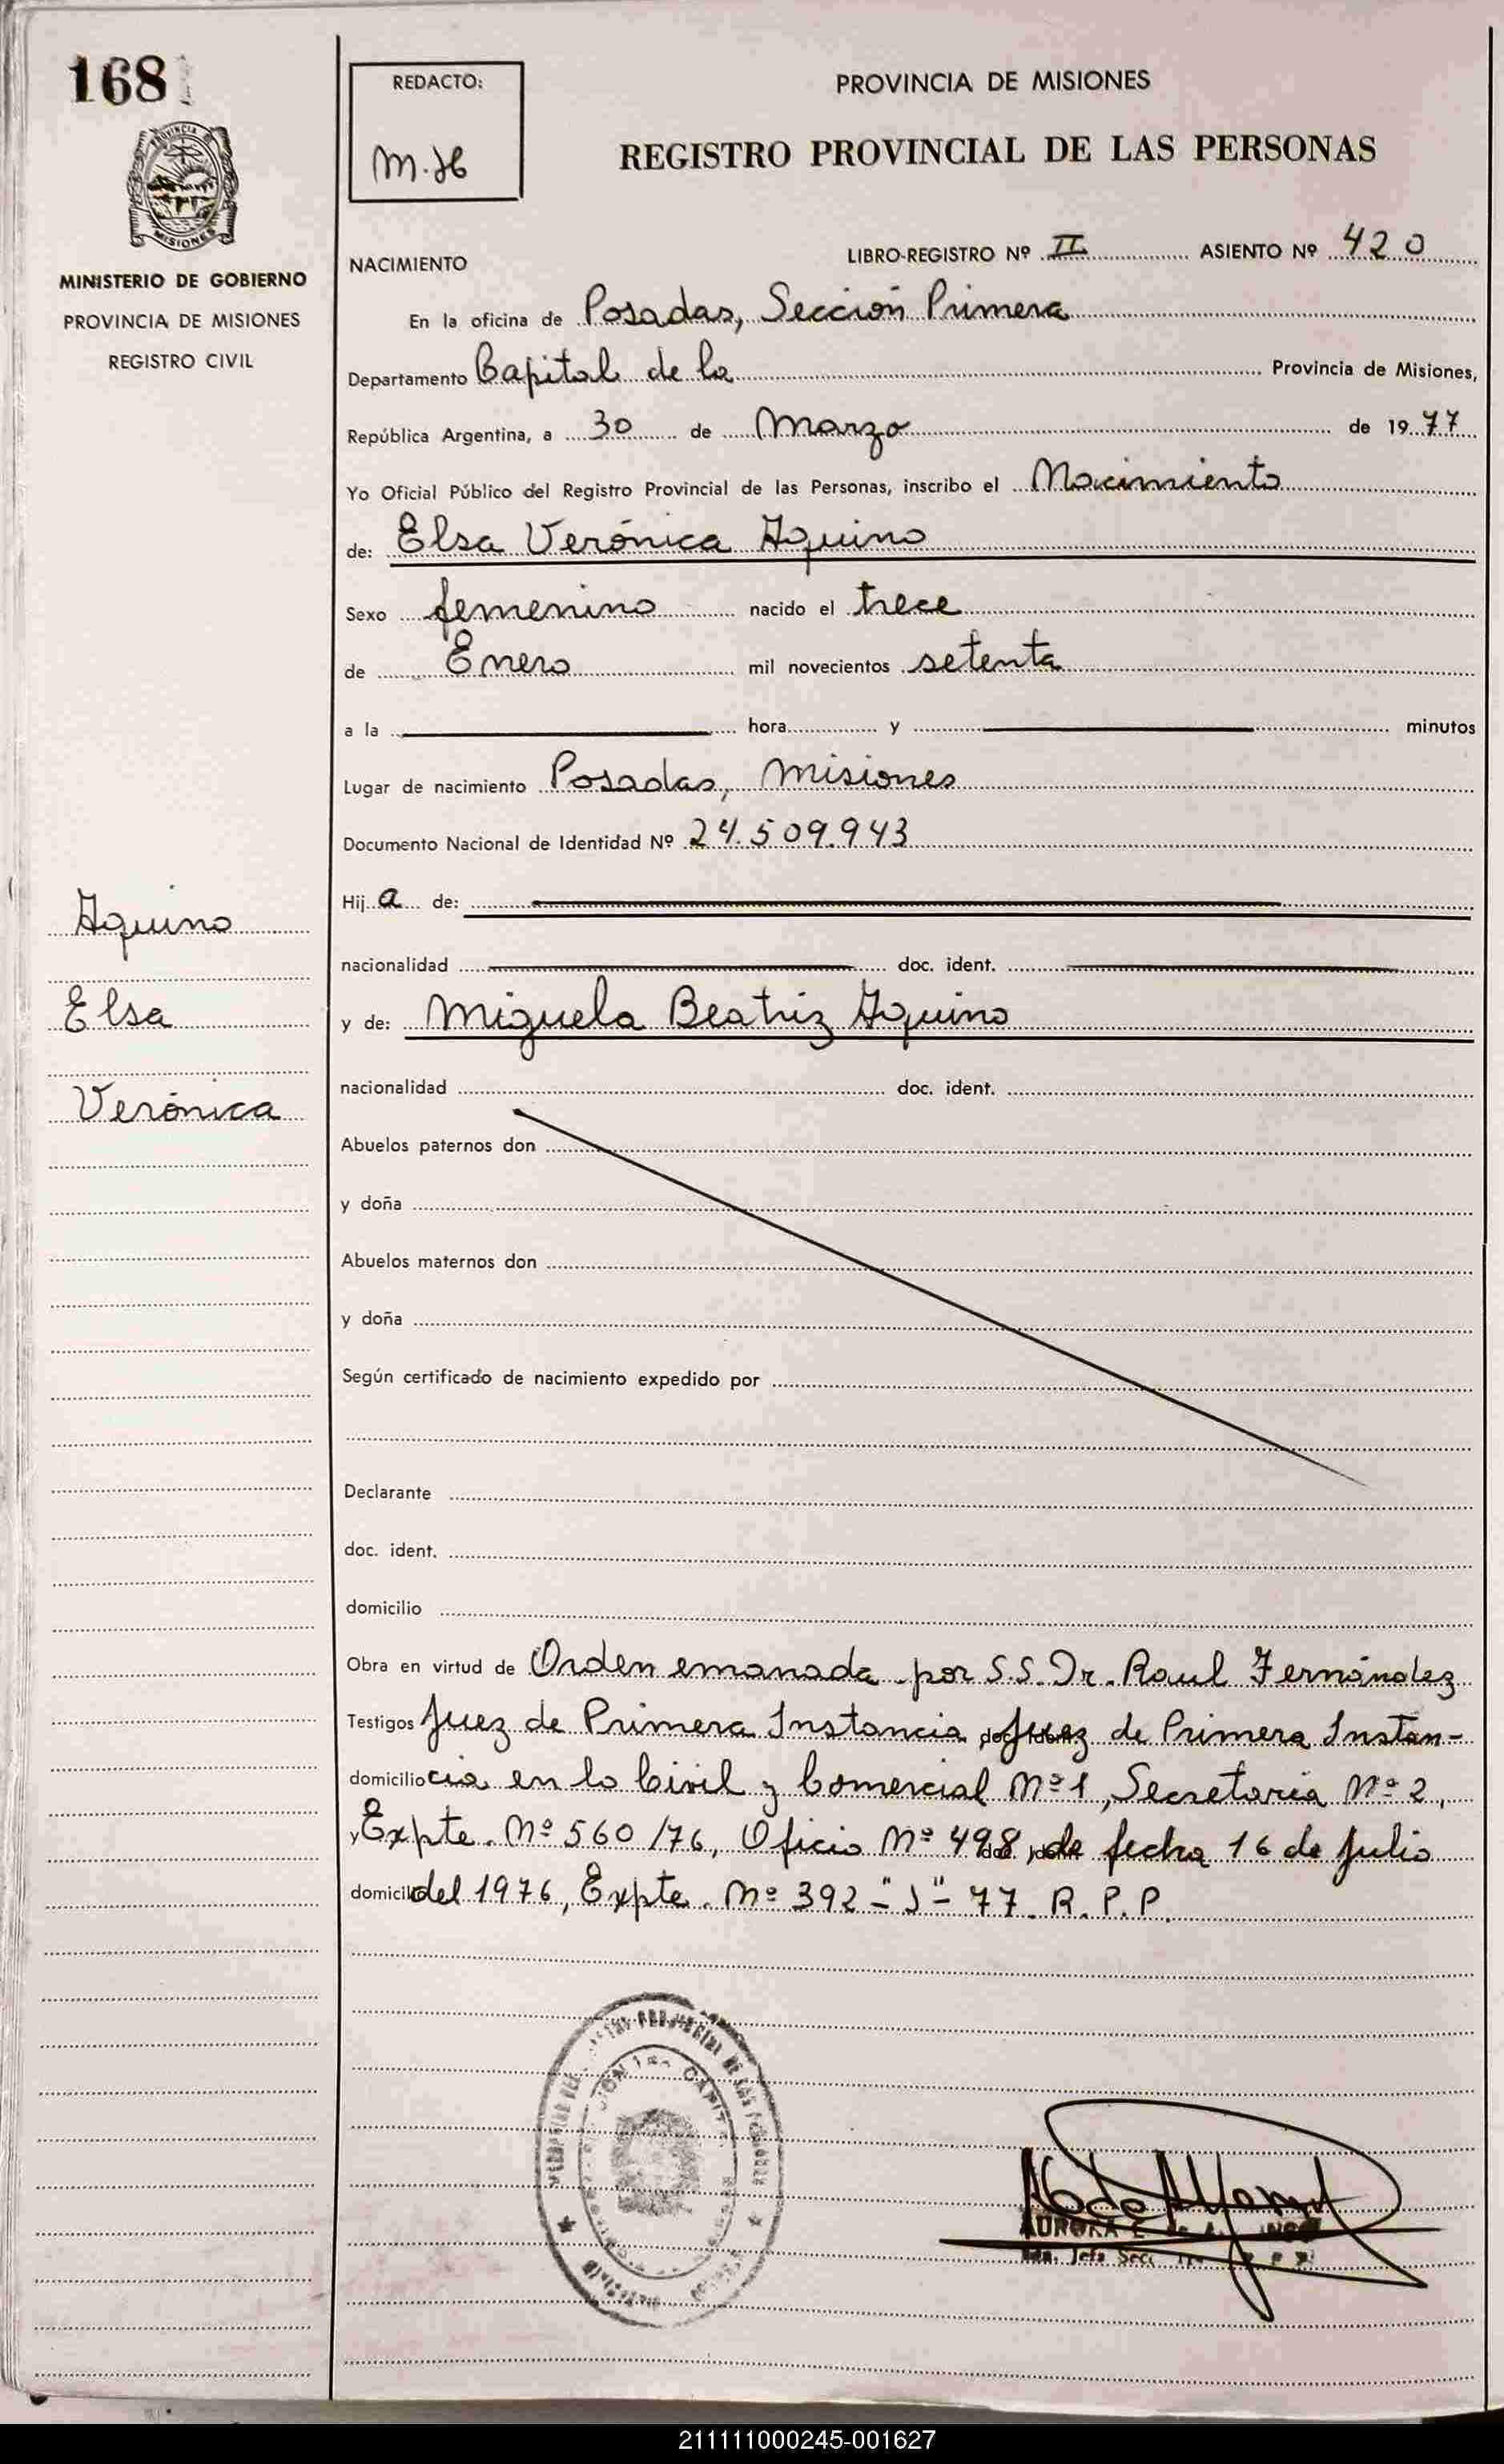 168
MINISTERIO DE GOBIERNO
PROVINCIA DE MISIONES
REGISTRO CIVIL
REDACTO:
M.H
PROVINCIA DE MISIONES
REGISTRO PROVINCIAL DE LAS PERSONAS
NACIMIENTO
LIBRO-REGISTRO Nº II ASIENTO Nº 420
En la oficina de Posadas, Sección Primera
Departamento Capital de la Provincia de Misiones,
República Argentina, a 30 de Marzo de 1977
Yo Oficial Público del Registro Provincial de las Personas, inscribo el Nacimiento
de: Elsa Verónica Aquino
Sexo femenino nacido el trece
de Enero mil novecientos setenta
a la hora y minutos
Lugar de nacimiento Posadas, Misiones
Documento Nacional de Identidad Nº 24.509.943
Hija de:
nacionalidad doc. ident.
y de: Miguela Beatriz Aquino
nacionalidad doc. ident.
Abuelos paternos don
y doña
Abuelos maternos don
y doña
Según certificado de nacimiento expedido por
Declarante
doc. ident.
domicilio
Obra en virtud de Orden emanada por S.S. Dr. Raul Fernández
Testigos Juez de Primera Instancia, Juez de Primera Instan-
domicilio cia en lo Civil y Comercial Nº 1, Secretaría Nº 2,
y Expte. Nº 560/76, Oficio Nº 498, de fecha 16 de Julio
domicilio del 1976, Expte. Nº 392 - "J" - 77 R.P.P.
Aquino
Elsa
Verónica
PROVINCIAL DE LAS PERSONAS
AURORA E. de
Jefe Secc.
211111000245-001627